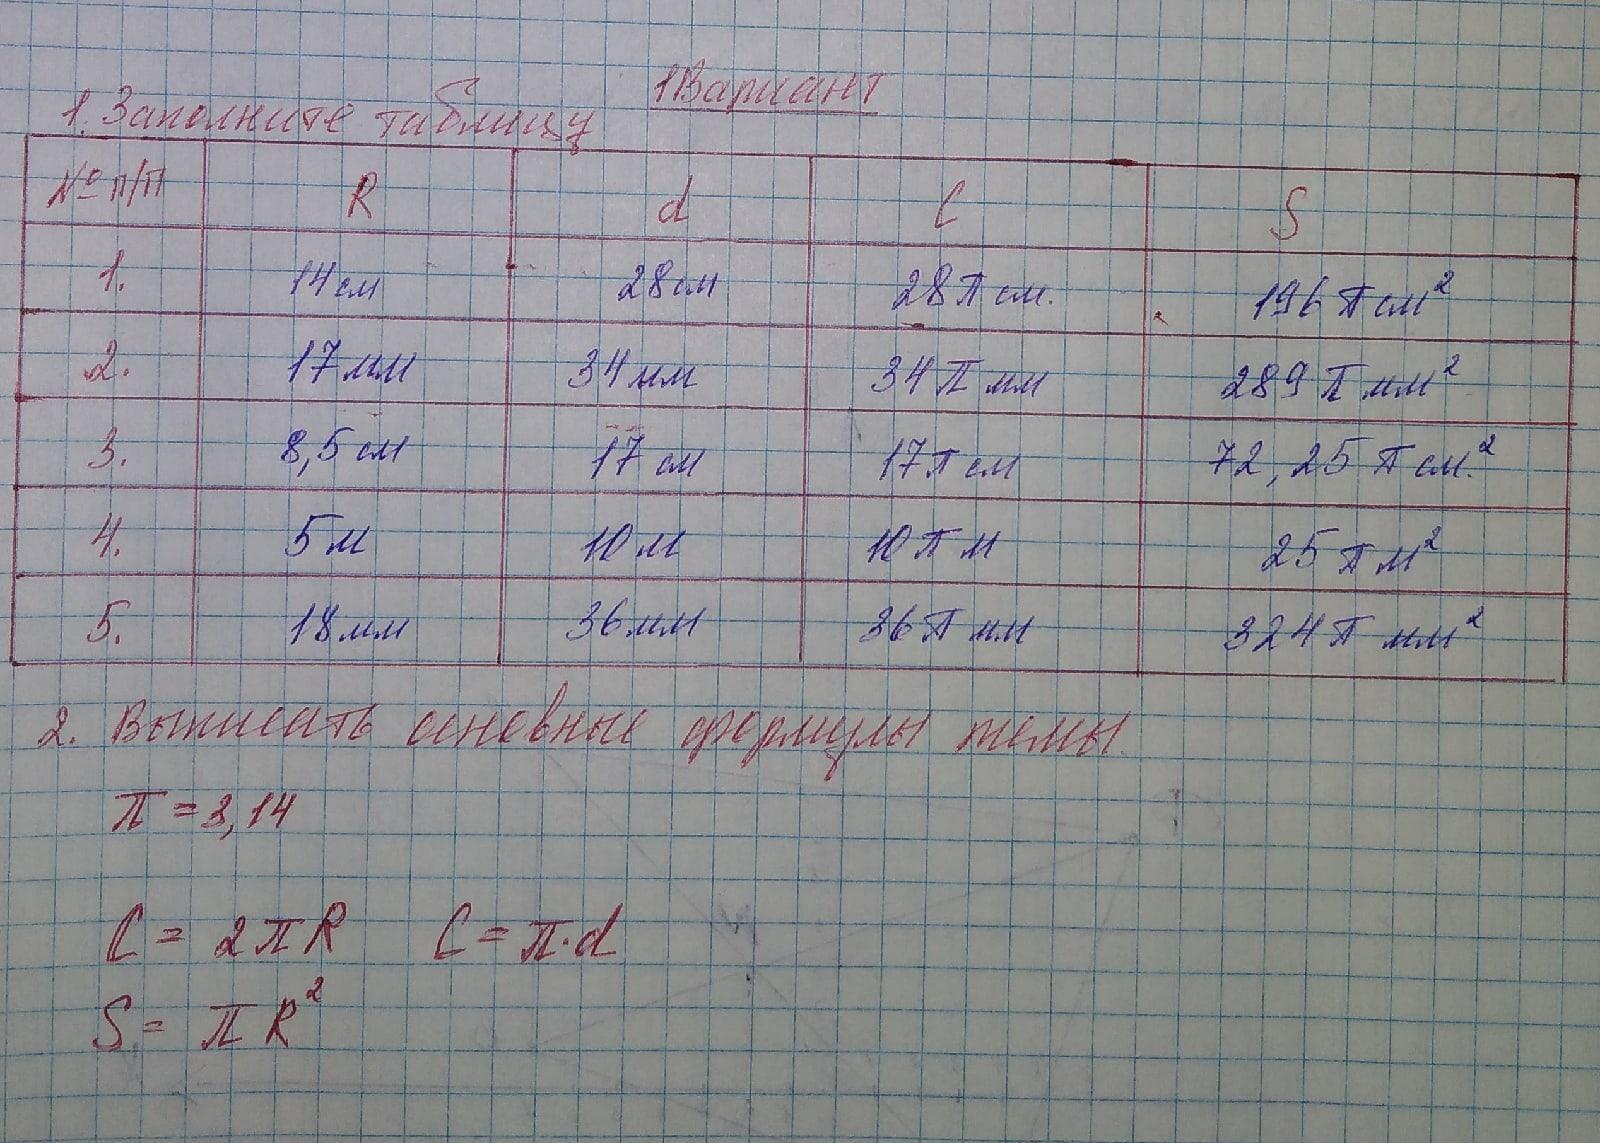 1 Вариант
1. Заполните таблицу
№ п/п R d C S
1. 14см 28см 28π см. 196π см²
2. 17мм 34мм 34π мм 289π мм²
3. 8,5см 17см 17π см 72,25π см.²
4. 5м 10м 10π м 25π м²
5. 18мм 36мм 36π мм 324π мм²
2. Выписать основные формулы темы.
π = 3,14
C = 2πR C = π·d
S = πR²